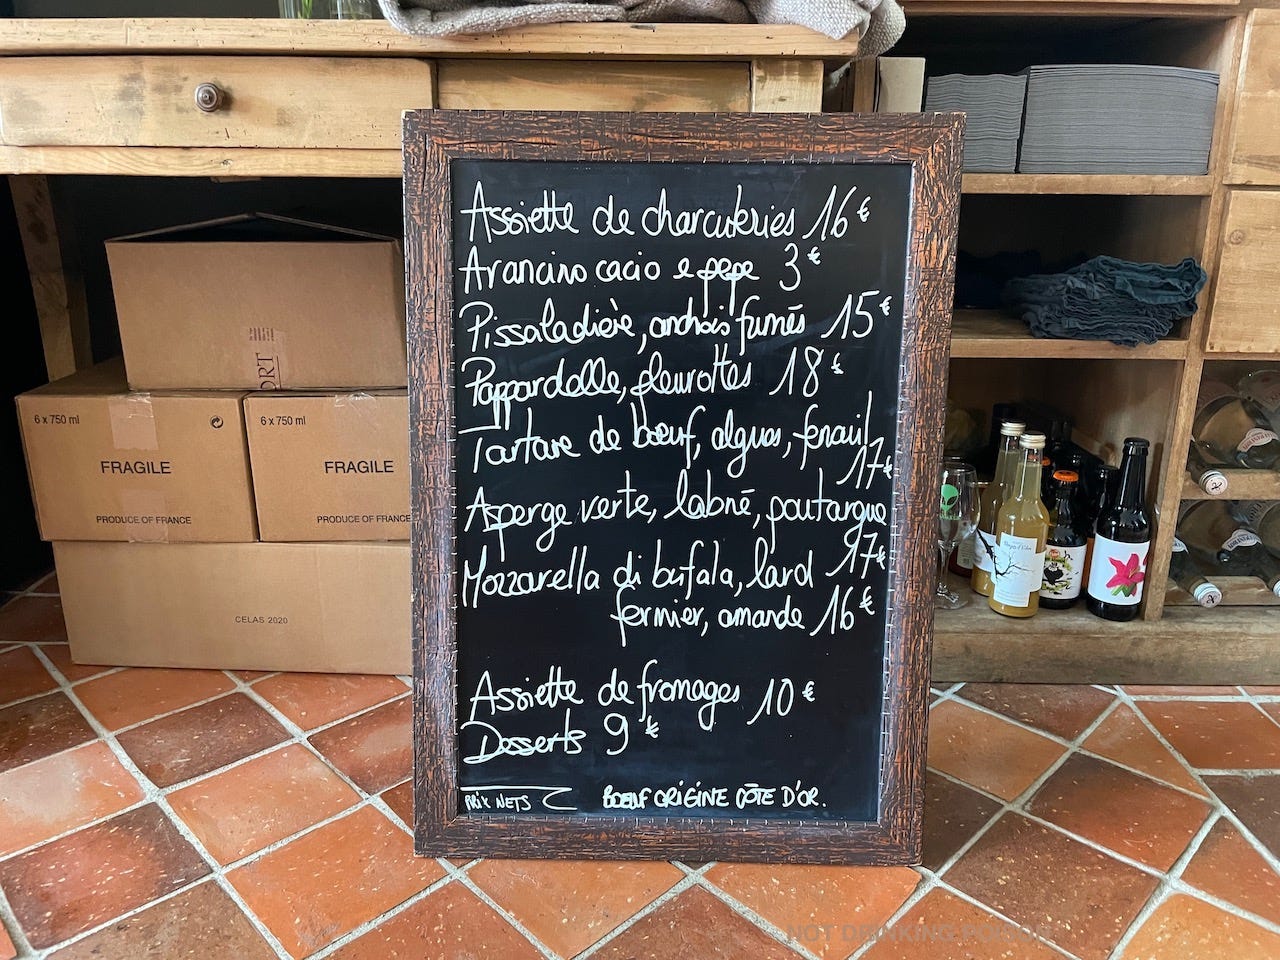 Assiette de charcuteries 16€
Arancino cacio e pepe 3€
Pissaladière, anchois fumés 15€
Pappardelle, pleurottes 18€
Tartare de bœuf, algues, fenouil
17€
Asperge verte, labné, poutargue
17€
Mozzarella di bufala, lard
fermier, amande 16€
Assiette de fromages 10€
Desserts 9€
PRIX NETS
BŒUF ORIGINE CÔTE D'OR.
6 x 750 ml
FRAGILE
PRODUCE OF FRANCE
6 x 750 ml
FRAGILE
PRODUCE OF FRANCE
CELAS 2020
NOT DRINKING POISON